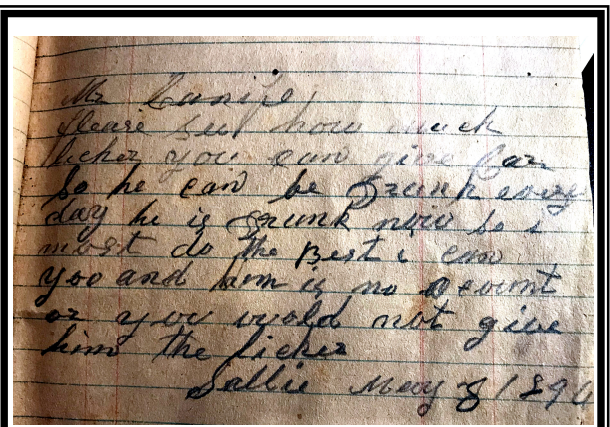 Mr
Please see how much
licker you can give
so he can be Drunk every
day he is Drunk now so i
most do the Best i can
you and him is no acount
or you would not give
him the licker
Sallie May 8 189